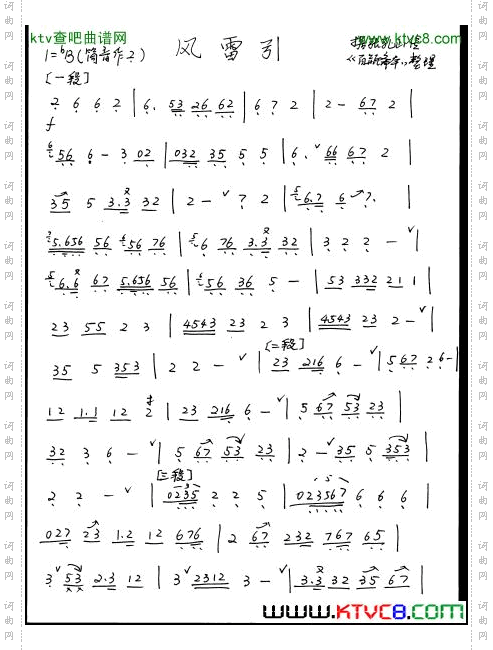 ktv查吧曲谱网
www.ktvc8.com
风雷引
1=♭B(筒音作2)
[一段]
2 6 6 2 | 6. 53 26 62 | 6 7 2 | 2 - 67 2 |
f
56 6 - 3 02 | 032 35 5 5 | 6. 66 67 2 |
35 5 3.3 32 | 2 - 7 2 | 6.7 6 7. |
5.656 56 56 76 | 6 76 3.3 32 | 3 2 2 - |
6.6 67 5.656 56 | 56 36 5 - | 53 332 2 1 1 |
23 55 2 3 | 4543 23 2 3 | 4543 23 2 - |
[二段]
35 5 353 | 2 2 - | 23 216 6 - | 5 67 2 6 - |
12 1.1 12 2 | 23 216 6 - | 5 67 53 23 |
32 3 6 - | 5 67 53 23 | 2 - 35 5 353 |
[三段]
2 2 - | 0235 2 2 5 | 023567 6 6 6 |
027 23 1.2 12 676 | 2 67 232 767 65 |
3 53 2.3 12 | 3 2312 3 - | 3.3 32 35 67 |
www.KTVC8.com
词曲网
词曲网
词曲网
词曲网
词曲网
词曲网
词曲网
词曲网